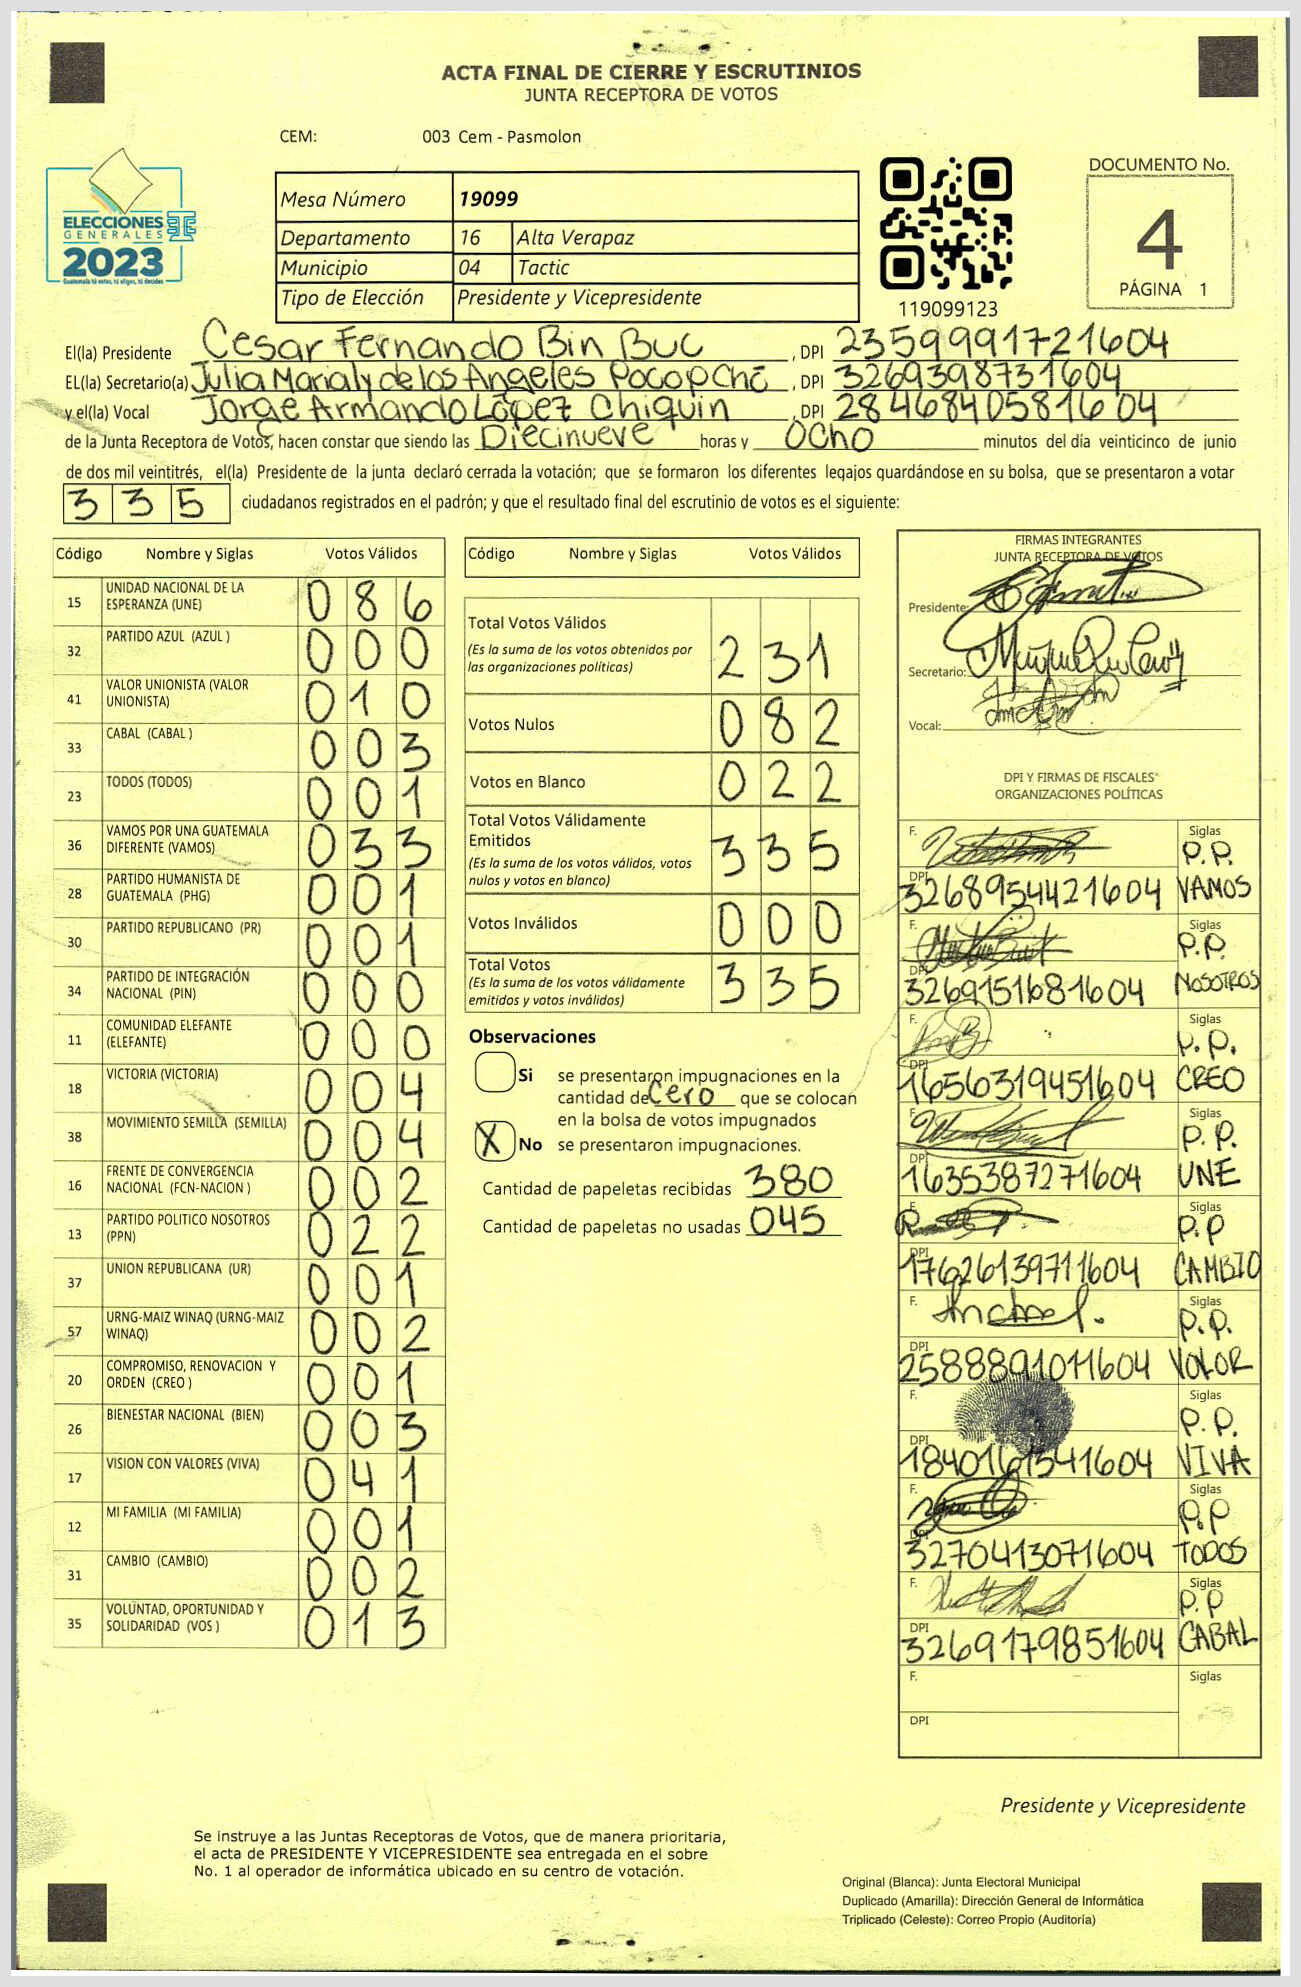 ACTA FINAL DE CIERRE Y ESCRUTINIOS
JUNTA RECEPTORA DE VOTOS
CEM: 003 Cem - Pasmolon
ELECCIONES
GENERALES
2023
Guatemala tú votas, tú eliges, tú decides
Mesa Número 19099
Departamento 16 Alta Verapaz
Municipio 04 Tactic
Tipo de Elección Presidente y Vicepresidente
119099123
DOCUMENTO No.
4
PÁGINA 1
El(la) Presidente Cesar Fernando Bin Buc , DPI 2359991721604
EL(la) Secretario(a) Julia Marialy de los Angeles Pocop Ché , DPI 3269398731604
y el(la) Vocal Jorge Armando López Chiquin , DPI 2846840581604
de la Junta Receptora de Votos, hacen constar que siendo las Diecinueve horas y Ocho minutos del día veinticinco de junio
de dos mil veintitrés, el(la) Presidente de la junta declaró cerrada la votación; que se formaron los diferentes legajos quardándose en su bolsa, que se presentaron a votar
335 ciudadanos registrados en el padrón; y que el resultado final del escrutinio de votos es el siguiente:
Código Nombre y Siglas Votos Válidos
15 UNIDAD NACIONAL DE LA ESPERANZA (UNE) 086
32 PARTIDO AZUL (AZUL ) 000
41 VALOR UNIONISTA (VALOR UNIONISTA) 010
33 CABAL (CABAL ) 003
23 TODOS (TODOS) 001
36 VAMOS POR UNA GUATEMALA DIFERENTE (VAMOS) 033
28 PARTIDO HUMANISTA DE GUATEMALA (PHG) 001
30 PARTIDO REPUBLICANO (PR) 001
34 PARTIDO DE INTEGRACIÓN NACIONAL (PIN) 000
11 COMUNIDAD ELEFANTE (ELEFANTE) 000
18 VICTORIA (VICTORIA) 004
38 MOVIMIENTO SEMILLA (SEMILLA) 004
16 FRENTE DE CONVERGENCIA NACIONAL (FCN-NACION ) 002
13 PARTIDO POLITICO NOSOTROS (PPN) 022
37 UNION REPUBLICANA (UR) 001
57 URNG-MAIZ WINAQ (URNG-MAIZ WINAQ) 002
20 COMPROMISO, RENOVACION Y ORDEN (CREO ) 001
26 BIENESTAR NACIONAL (BIEN) 003
17 VISION CON VALORES (VIVA) 041
12 MI FAMILIA (MI FAMILIA) 001
31 CAMBIO (CAMBIO) 002
35 VOLUNTAD, OPORTUNIDAD Y SOLIDARIDAD (VOS ) 013
Código Nombre y Siglas Votos Válidos
Total Votos Válidos
(Es la suma de los votos obtenidos por
las organizaciones políticas) 231
Votos Nulos 082
Votos en Blanco 022
Total Votos Válidamente
Emitidos
(Es la suma de los votos válidos, votos
nulos y votos en blanco) 335
Votos Inválidos 000
Total Votos
(Es la suma de los votos válidamente
emitidos y votos inválidos) 335
Observaciones
Si se presentaron impugnaciones en la
cantidad de Cero que se colocan
en la bolsa de votos impugnados
X No se presentaron impugnaciones.
Cantidad de papeletas recibidas 380
Cantidad de papeletas no usadas 045
FIRMAS INTEGRANTES
JUNTA RECEPTORA DE VOTOS
Presidente:
Secretario:
Vocal:
DPI Y FIRMAS DE FISCALES
ORGANIZACIONES POLÍTICAS
F. Siglas P.P.
DPI 3268954421604 VAMOS
F. Siglas P.P.
DPI 3269151681604 NOSOTROS
F. Siglas P.P.
DPI 1656319451604 CREO
F. Siglas P.P.
DPI 1635387271604 UNE
F. Siglas P.P
DPI 1762613971604 CAMBIO
F. Siglas P.P.
DPI 2588891011604 VOLOR
F. Siglas P.P.
DPI 1840161541604 VIVA
F. Siglas P.P
DPI 3270413071604 TODOS
F. Siglas P.P
DPI 3269179851604 CABAL
F. Siglas
DPI
Presidente y Vicepresidente
Se instruye a las Juntas Receptoras de Votos, que de manera prioritaria,
el acta de PRESIDENTE Y VICEPRESIDENTE sea entregada en el sobre
No. 1 al operador de informática ubicado en su centro de votación.
Original (Blanca): Junta Electoral Municipal
Duplicado (Amarilla): Dirección General de Informática
Triplicado (Celeste): Correo Propio (Auditoría)